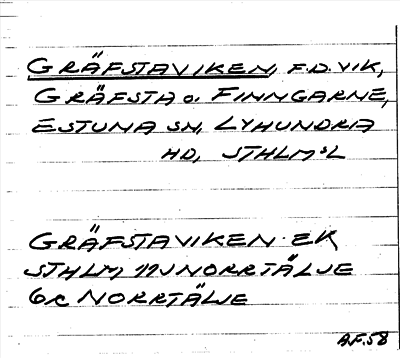 GRÄFSTAVIKEN, F.D. VIK,
GRÄFSTA o. FINNGARNE,
ESTUNA SN, LYHUNDRA
HD, STHLMSL
GRÄFSTAVIKEN. EK
STHLM 11J NORRTÄLJE
6c NORRTÄLJE
A.F.58